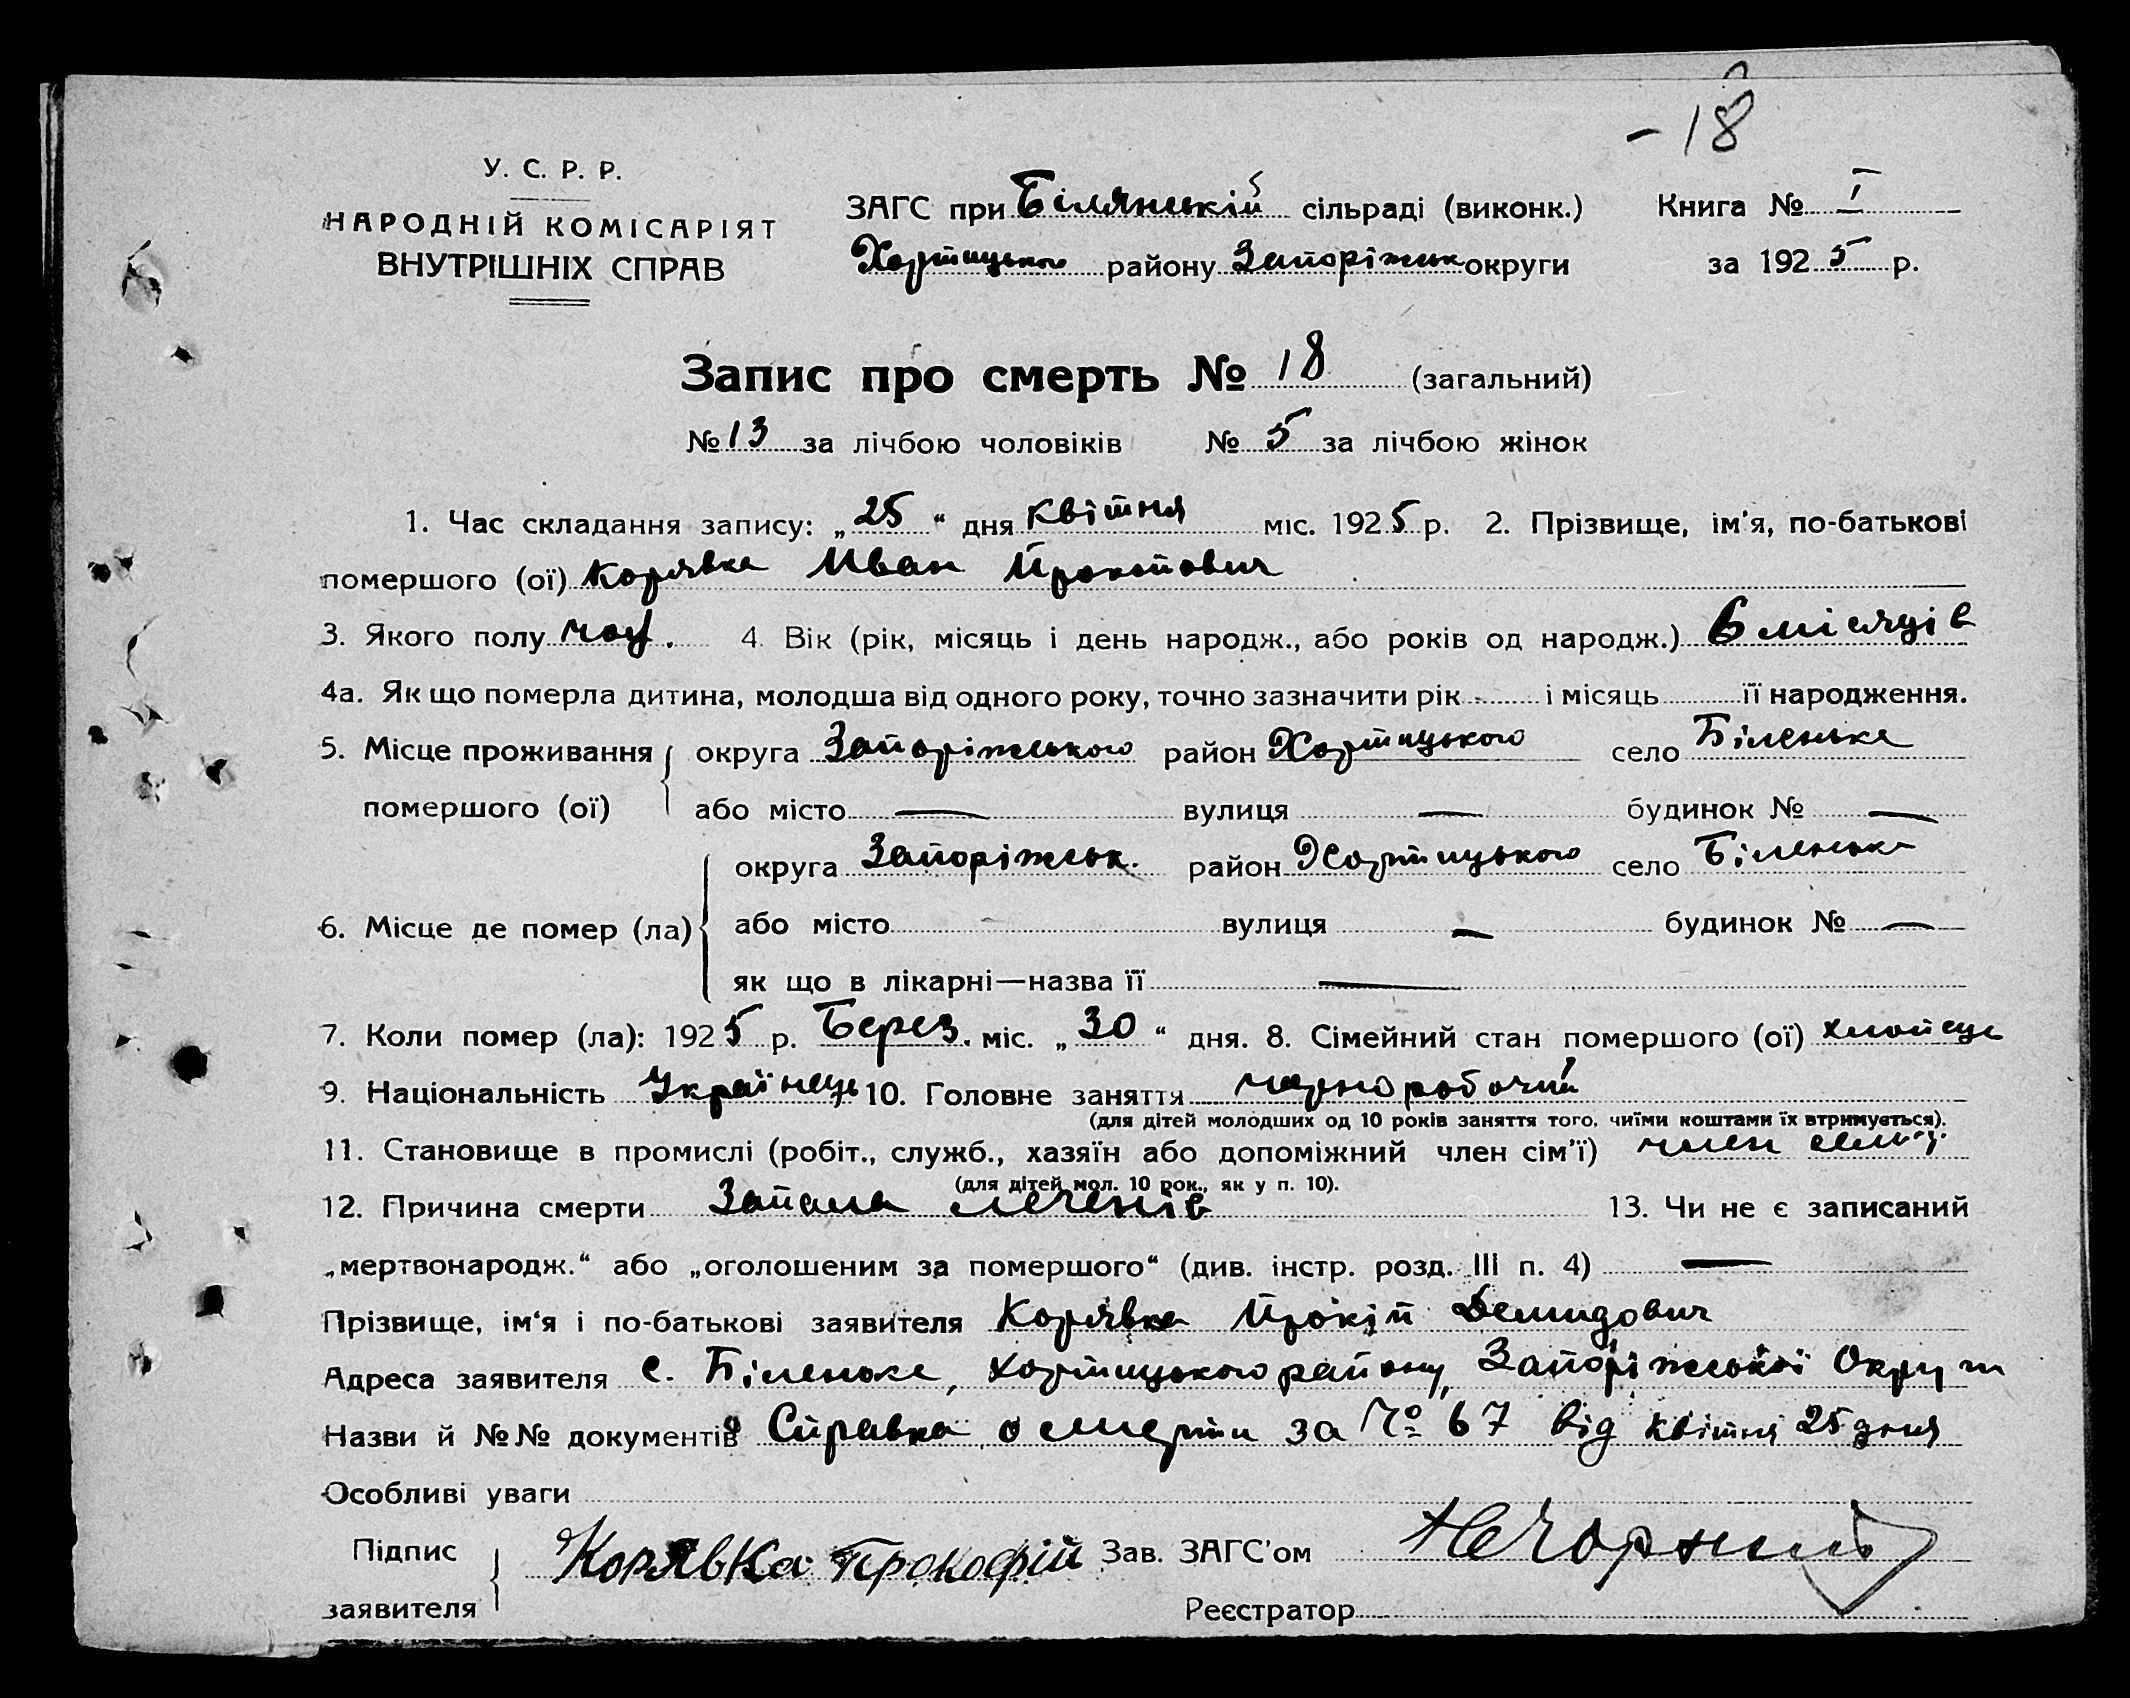 - 18
У. С. Р. Р.
НАРОДНІЙ КОМІСАРІЯТ
ВНУТРІШНІХ СПРАВ
ЗАГС при Білянській сільраді (виконк.) Книга № I
Хортицького району Запоріжськ округи за 1925 р.
Запис про смерть № 18 (загальний)
№ 13 за лічбою чоловіків № 5 за лічбою жінок
1. Час складання запису: „25“ дня Квітня міс. 1925 р. 2. Прізвище, ім'я, по-батькові
помершого (ої) Корявка Иван Прокопович
3. Якого полу чол. 4. Вік (рік, місяць і день народж., або років од народж.) 6 місяців
4а. Як що померла дитина, молодша від одного року, точно зазначити рік - і місяць її народження.
5. Місце проживання помершого (ої) округа Запоріжського район Хортицького село Біленьке
або місто — вулиця — будинок № —
6. Місце де помер (ла) округа Запоріжськ. район Хортицького село Біленьке
або місто - вулиця — будинок № —
як що в лікарні—назва її —
7. Коли помер (ла): 1925 р. Берез. міс. „30“ дня. 8. Сімейний стан помершого (ої) хлопець
9. Національність Українець 10. Головне заняття чорноробочий
(для дітей молодших од 10 років заняття того, чиїми коштами їх втримується).
11. Становище в промислі (робіт., служб., хазяїн або допоміжний член сім'ї) член семьї
(для дітей мол. 10 рок., як у п. 10).
12. Причина смерти Запала легенів 13. Чи не є записаний
„мертвонародж.“ або „оголошеним за помершого“ (див. інстр. розд. III п. 4) —
Прізвище, ім'я і по-батькові заявителя Корявка Прокіп Демидович
Адреса заявителя с. Біленьке, Хортицького району, Запоріжської Округи
Назви й №№ документів Справка о смерти за № 67 від квітня 25 дня
Особливі уваги
Підпис заявителя Корявка Прокофій Зав. ЗАГС'ом
Реєстратор